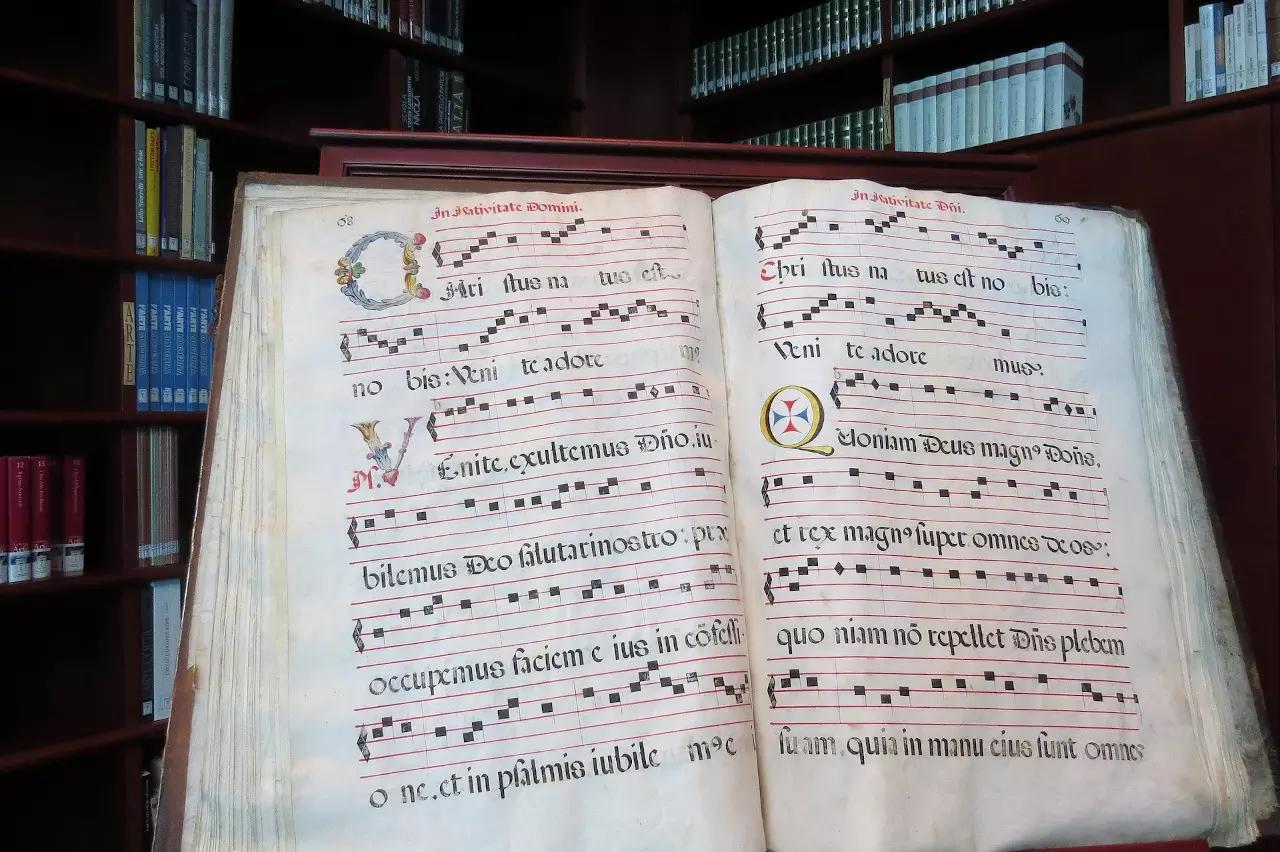 68
In Nativitate Domini.
CHri stus na tus est
no bis: Veni te adore m9
VEnite, exultemus Dño, iu-
M.
bilemus Deo salutari nostro: præ
occupemus faciem e ius in cõfessi-
o ne, et in psalmis iubile m9 e
In Nativitate Dñi.
69
Chri stus na tus est no bis:
Veni te adore mus.
QUoniam Deus magn9 Doñs,
et rex magn9 super omnes deos:
quo niam nõ repellet Dñs plebem
suam, quia in manu eius sunt omnes
ARTE
L'ARTE
L'ARTE
L'ARTE
L'ARTE
L'ARTE